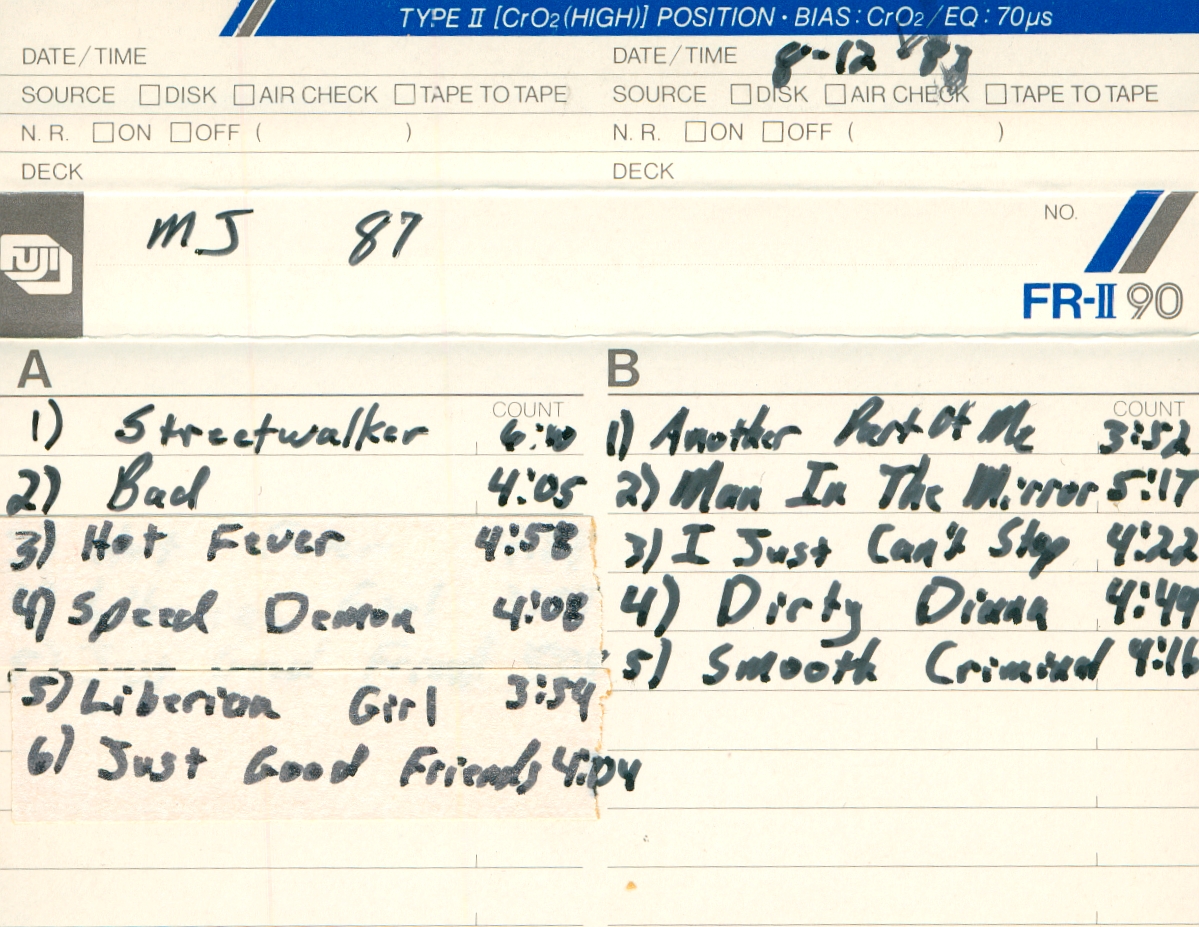 TYPE II [CrO2(HIGH)] POSITION · BIAS : CrO2 / EQ : 70µs
DATE/TIME
DATE/TIME 8-12
SOURCE □DISK □AIR CHECK □TAPE TO TAPE
SOURCE □DISK □AIR CHECK □TAPE TO TAPE
N. R. □ON □OFF ( )
N. R. □ON □OFF ( )
DECK
DECK
FUJI
MJ 87
NO.
FR-II 90
A
COUNT
1) Streetwalker
2) Bad 4:05
3) Hot Fever 4:58
4) Speed Demon 4:08
5) Liberian Girl 3:54
6) Just Good Friends 4:04
B
COUNT
1) Another Part Of Me 3:52
2) Man In The Mirror 5:17
3) I Just Can't Stop 4:22
4) Dirty Diana 4:49
5) Smooth Criminal 4:16